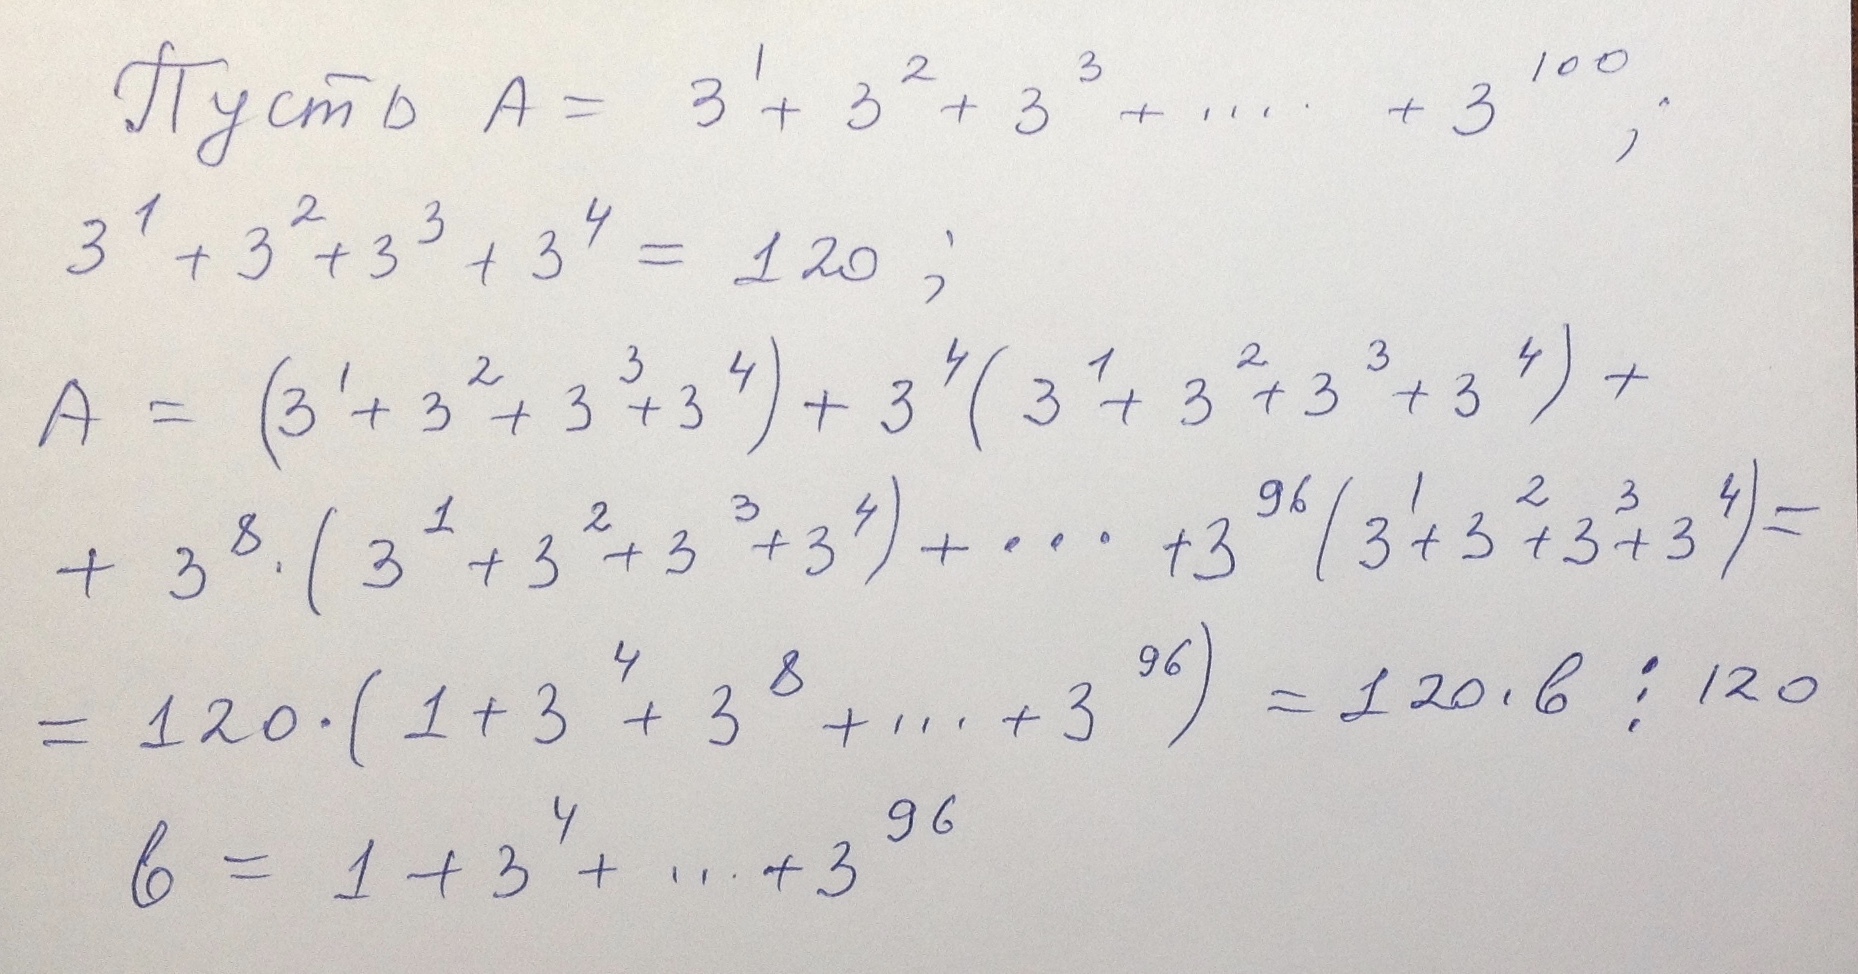 Пусть A = 3¹ + 3² + 3³ + ..... + 3¹⁰⁰;
3¹ + 3² + 3³ + 3⁴ = 120;
A = (3¹ + 3² + 3³ + 3⁴) + 3⁴(3¹ + 3² + 3³ + 3⁴) +
+ 3⁸·(3¹ + 3² + 3³ + 3⁴) + ... + 3⁹⁶(3¹ + 3² + 3³ + 3⁴) =
= 120·(1 + 3⁴ + 3⁸ + ... + 3⁹⁶) = 120·в ⋮ 120
в = 1 + 3⁴ + ... + 3⁹⁶